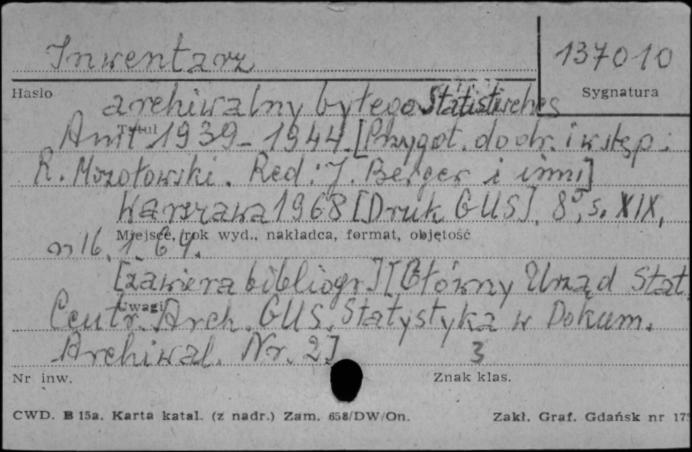 Inwentarz 137010
Hasło Sygnatura
archiwalny byłego Statistisches
Tytuł
Amt 1939-1944. [Przygot. do dr. i wstęp:
R. Mozołowski. Red.: J. Berger i inni]
Warszawa 1968 [Druk GUS]. 8°, s. XIX,
Miejsce, rok wyd., nakładca, format, objętość
[zawiera bibliogr.] [Główny Urząd Stat.
Uwagi
Centr. Arch. GUS. Statystyka w Dokum.
Archiwal. Nr. 2] 3
Nr inw. Znak klas.
CWD. B 15a. Karta katal. (z nadr.) Zam. 658/DW/On. Zakł. Graf. Gdańsk nr